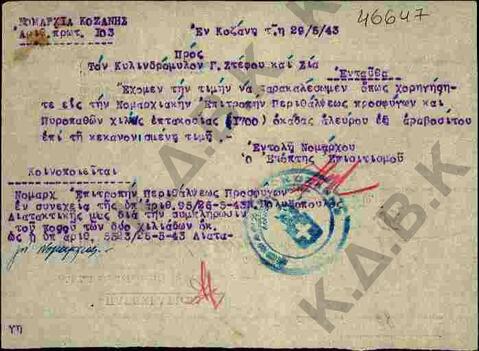 46647
ΝΟΜΑΡΧΙΑ ΚΟΖΑΝΗΣ
Αριθ.πρωτ. 103
Εν Κοζάνη τ῀η 29/5/43
Πρός
Τόν Κυλινδρόμυλον Γ.Στέφου καί Σία
Ενταῦθα
Έχομεν τήν τιμήν νά παρακαλέσωμεν όπως χορηγήση-
τε είς τήν Νομαρχιακήν Επιτροπήν Περιθάλψεως προσφύγων καί
Πυροπαθών χιλίας επτακοσίας (1700) οκάδας άλευρου έξ άραβοσίτου
έπί τή κεκανονισμένη τιμή.-
Εντολή Νομάρχου
Ο Επόπτης Επισιτισμού
Κοινοποιείται
Νομαρχ Επιτροπήν Περιθάλψεως Προσφύγων
έν συνεχεία τής ύπ άριθ. 95/26-5-43
Διατακτικής μας διά τήν συμπλήρωσιν
τού ποσού τών δύο χιλιάδων οκ.
ως ή ύπ άριθ. /25-5-43 Διατα-
γή Νομαρχίας
ΥΠ
Κ.Δ.Β.Κ